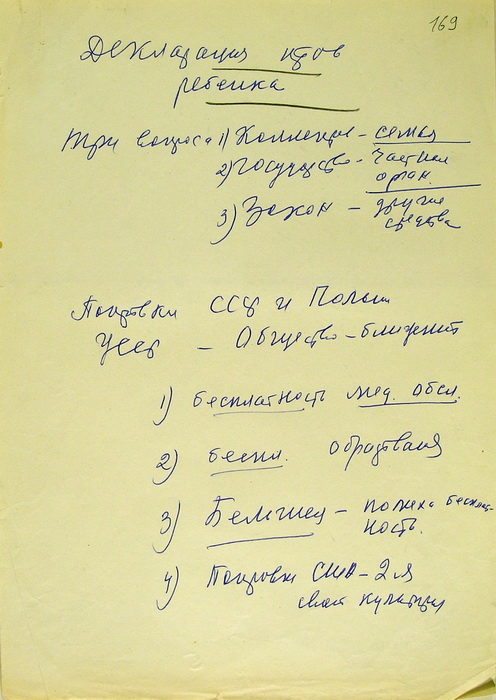 169
Декларация прав
ребенка
Три вопроса 1) Коллектив – семья
2) Государство – частная
орган.
3) Закон – другие
средства
Поправки СССР и Польши
УССР – Общество –
1) бесплатность мед. обсл.
2) беспл. образования
3) Бельгия – полная бесплат-
ность.
4) Поправки США – 2-я
своя культура